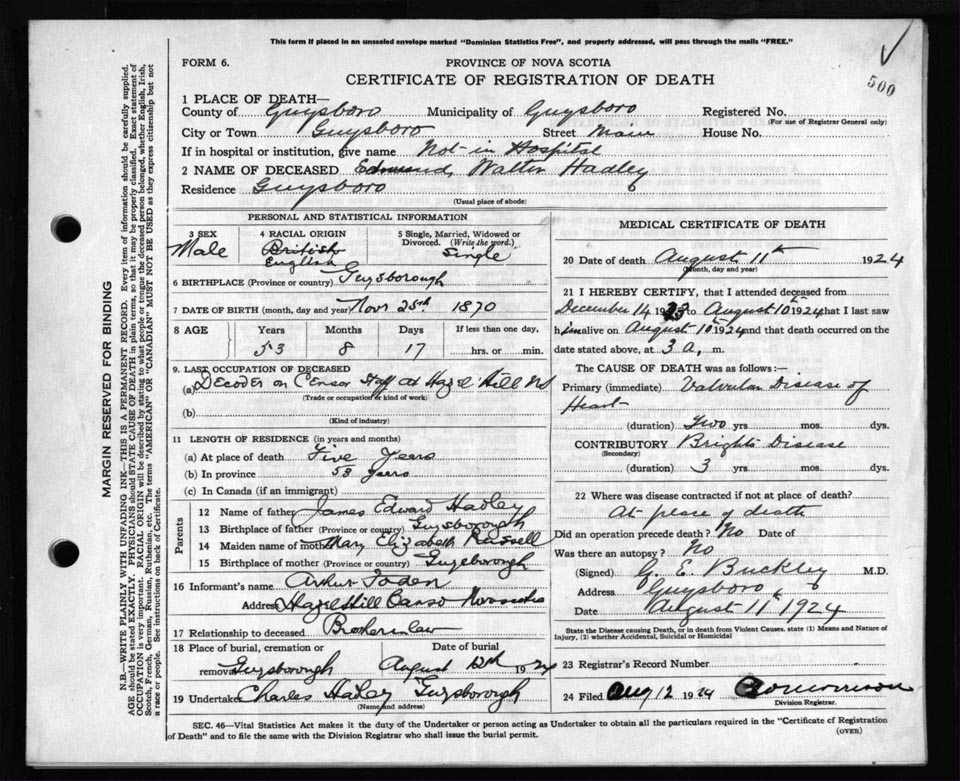 This form if placed in an unsealed envelope marked "Dominion Statistics Free", and properly addressed, will pass through the mails "FREE."
FORM 6.
PROVINCE OF NOVA SCOTIA
CERTIFICATE OF REGISTRATION OF DEATH
500
1 PLACE OF DEATH—
County of Guysboro Municipality of Guysboro Registered No.
(For use of Registrar General only)
City or Town Guysboro Street Main House No.
If in hospital or institution, give name Not in Hospital
2 NAME OF DECEASED Edmund Walter Hadley
Residence Guysboro
(Usual place of abode)
PERSONAL AND STATISTICAL INFORMATION
3 SEX
Male
4 RACIAL ORIGIN
British
English
5 Single, Married, Widowed or Divorced. (Write the word.)
Single
6 BIRTHPLACE (Province or country) Guysborough
7 DATE OF BIRTH (month, day and year) Nov 25th 1870
8 AGE Years Months Days If less than one day,
53 8 17 hrs. or min.
9. LAST OCCUPATION OF DECEASED
(a) Decoder on Censor Staff at Hazel Hill NS
(Trade or occupation or kind of work)
(b)
(Kind of industry)
11 LENGTH OF RESIDENCE (in years and months)
(a) At place of death Five Years
(b) In province 53 years
(c) In Canada (if an immigrant)
Parents
12 Name of father James Edward Hadley
13 Birthplace of father (Province or country) Guysborough
14 Maiden name of mother Mary Elizabeth Russell
15 Birthplace of mother (Province or country) Guysborough
16 Informant's name Arthur
Address Hazel Hill Canso Nova Scotia
17 Relationship to deceased Brother in law
18 Place of burial, cremation or removal Date of burial
Guysborough August 1924
19 Undertaker Charles Hadley Guysborough
(Name and address)
MEDICAL CERTIFICATE OF DEATH
20 Date of death August 11th 1924
(Month, day and year)
21 I HEREBY CERTIFY, that I attended deceased from
December 14 1923 to August 10th 1924 that I last saw
him alive on August 10th 1924 and that death occurred on
date stated above, at 3 a, m.
The CAUSE OF DEATH was as follows:—
Primary (immediate) Valvular Disease of
Heart
(duration) Two yrs. mos. dys.
CONTRIBUTORY Brights Disease
(Secondary)
(duration) 3 yrs. mos. dys.
22 Where was disease contracted if not at place of death?
At place of death
Did an operation precede death? No Date of
Was there an autopsy? No
(Signed) G. E. Buckley M.D.
Address Guysboro
Date August 11th 1924
State the Disease causing Death, or in death from Violent Causes, state (1) Means and Nature of
Injury, (2) whether Accidental, Suicidal or Homicidal
23 Registrar's Record Number
24 Filed Aug 12 1924
Division Registrar.
SEC. 46—Vital Statistics Act makes it the duty of the Undertaker or person acting as Undertaker to obtain all the particulars required in the "Certificate of Registration
of Death" and to file the same with the Division Registrar who shall issue the burial permit.
(OVER)
MARGIN RESERVED FOR BINDING
N.B.—WRITE PLAINLY WITH UNFADING INK—THIS IS A PERMANENT RECORD. Every item of information should be carefully supplied.
AGE should be stated EXACTLY. PHYSICIANS should STATE CAUSE OF DEATH in plain terms, so that it may be properly classified. Exact statement of
OCCUPATION is very important. RACIAL ORIGIN will be described by stating to what people or tongue the deceased person belonged, whether English, Irish,
Scotch, French, German, Russian, Ruthenian, etc. The terms "AMERICAN" OR "CANADIAN" MUST NOT BE USED as they express citizenship but not
a race or people. See instructions on back of Certificate.